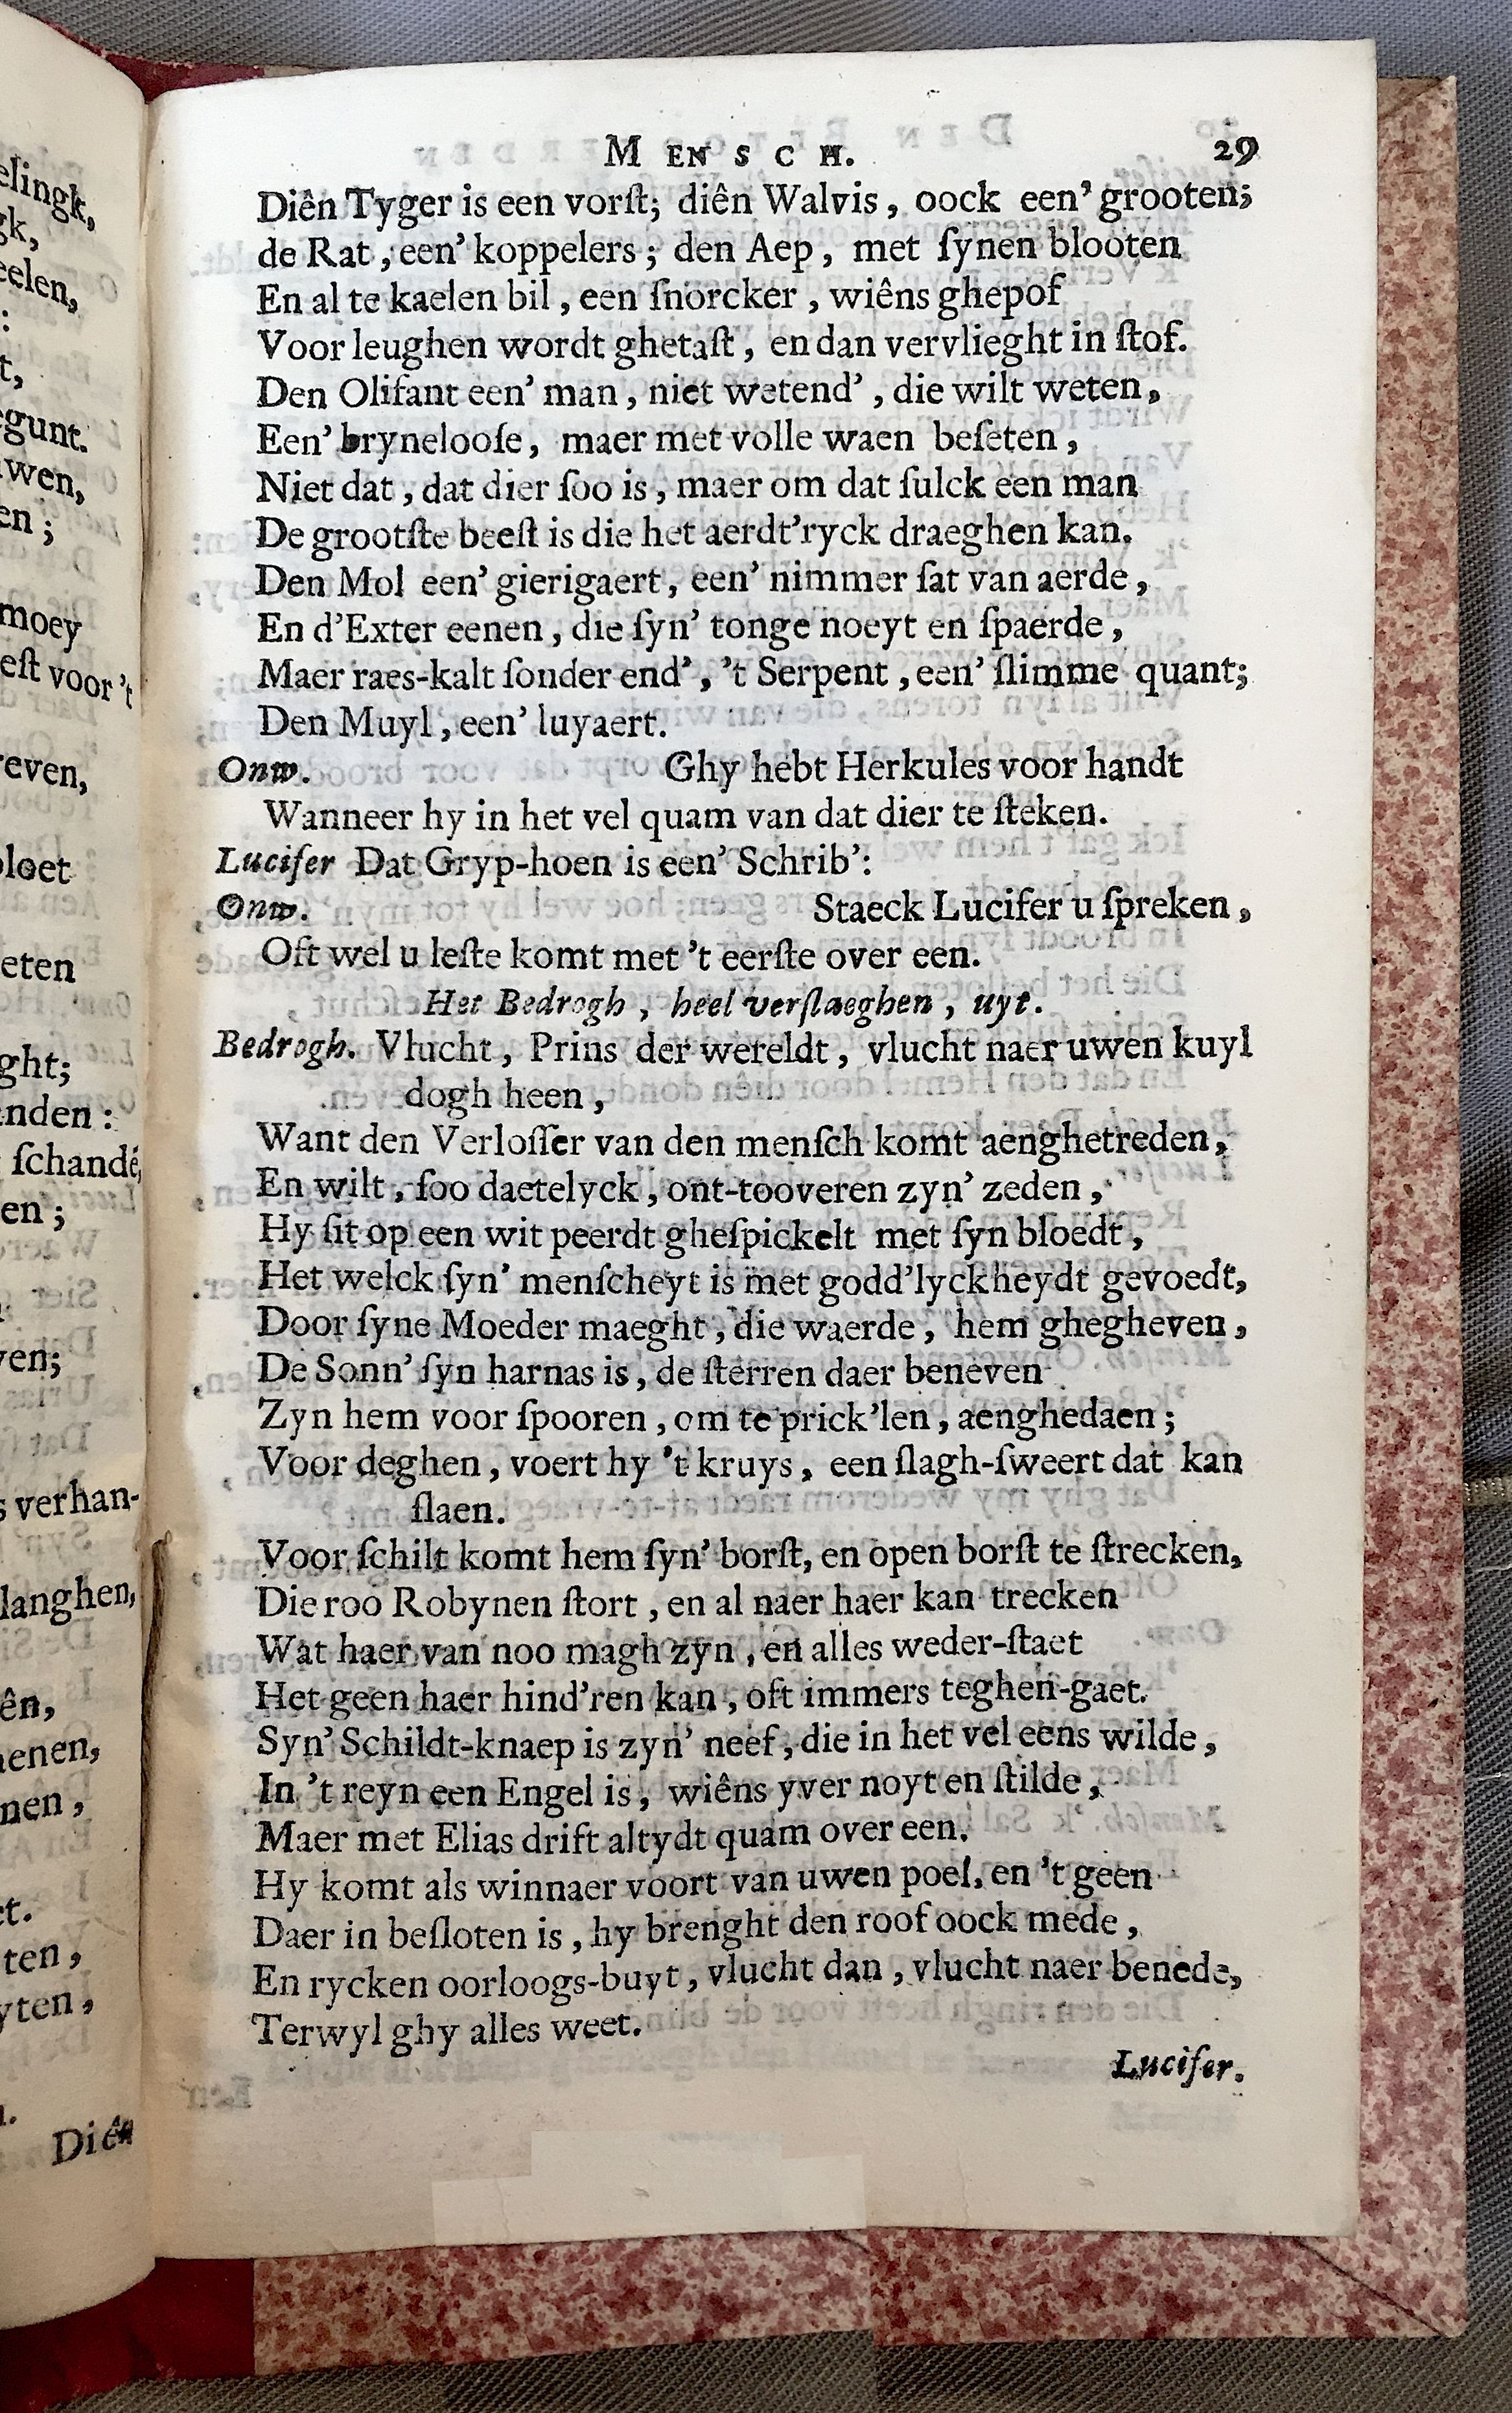 MENSCH. 29
Diên Tyger is een vorſt; diên Walvis, oock een' grooten;
de Rat, een' koppelers; den Aep, met ſynen blooten
En al te kaelen bil, een ſnorcker, wiêns ghepof
Voor leughen wordt ghetaſt, en dan vervlieght in ſtof.
Den Olifant een' man, niet wetend', die wilt weten,
Een' brynelooſe, maer met volle waen beſeten,
Niet dat, dat dier ſoo is, maer om dat ſulck een man
De grootſte beeſt is die het aerdt'ryck draeghen kan.
Den Mol een' gierigaert, een' nimmer ſat van aerde,
En d'Exter eenen, die ſyn' tonge noeyt en ſpaerde,
Maer raes-kalt ſonder end', 't Serpent, een' ſlimme quant;
Den Muyl, een' luyaert.
Onw. Ghy hebt Herkules voor handt
Wanneer hy in het vel quam van dat dier te ſteken.
Lucifer Dat Gryp-hoen is een' Schrib':
Onw. Staeck Lucifer u ſpreken,
Oft wel u leſte komt met 't eerſte over een.
Het Bedrogh, heel verſlaeghen, uyt.
Bedrogh. Vlucht, Prins der wereldt, vlucht naer uwen kuyl
dogh heen,
Want den Verloſſer van den menſch komt aenghetreden,
En wilt, ſoo daetelyck, ont-tooveren zyn' zeden,
Hy ſit op een wit peerdt gheſpickelt met ſyn bloedt,
Het welck ſyn' menſcheyt is met godd'lyckheydt gevoedt,
Door ſyne Moeder maeght, die waerde, hem ghegheven,
De Sonn' ſyn harnas is, de ſterren daer beneven
Zyn hem voor ſpooren, om te prick'len, aenghedaen;
Voor deghen, voert hy 't kruys, een ſlagh-ſweert dat kan
ſlaen.
Voor ſchilt komt hem ſyn' borſt, en open borſt te ſtrecken,
Die roo Robynen ſtort, en al naer haer kan trecken
Wat haer van noo magh zyn, en alles weder-ſtaet
Het geen haer hind'ren kan, oft immers teghen-gaet.
Syn' Schildt-knaep is zyn' neef, die in het vel eens wilde,
In 't reyn een Engel is, wiêns yver noyt en ſtilde,
Maer met Elias drift altydt quam over een.
Hy komt als winnaer voort van uwen poel, en 't geen
Daer in beſloten is, hy brenght den roof oock mede,
En rycken oorloogs-buyt, vlucht dan, vlucht naer benede,
Terwyl ghy alles weet.
Lucifer.